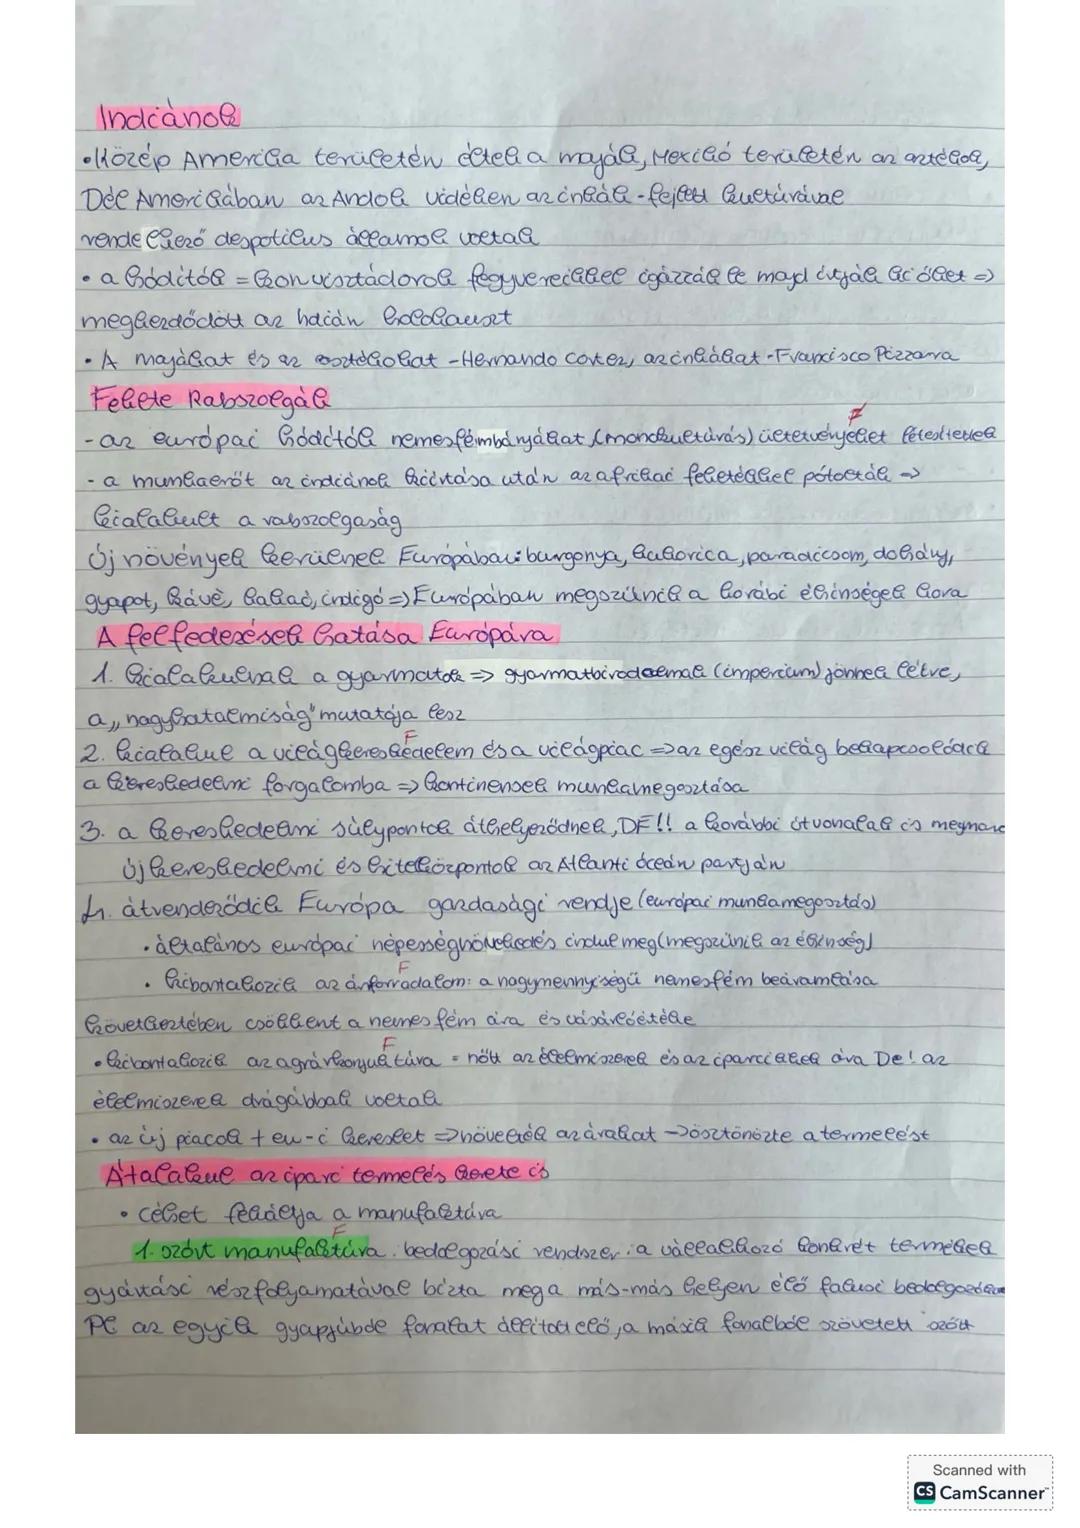 Indiánok
• Közép Amerika területén éltek a maják, Mexikó területén az aztékok,
Dél Amerikában az Andok vidékén az inkák - fejlett kultúrával
rendelkező despotikus államok voltak
• a hódítók = konkvisztádorok fegyvereikkel igázzák le majd írtják ki őket =>
megkezdődött az indián holokauszt
• A majákat és az aztékokat - Hernando Cortez, az inkákat - Francisco Pizzarra
Fekete Rabszolgák
- az európai hódítók nemesfémbányákat (monokultúrás) ültetvényeket létesítettek
- a munkaerőt az indiánok kiirtása után az afrikai feketékkel pótolták ->
kialakult a rabszolgaság
Új növények kerülnek Európába: burgonya, kukorica, paradicsom, dohány,
gyapot, kávé, kakaó, indigó => Európában megszűnik a korábi éhínségek kora
A felfedezések hatása Európára
1. kialakulnak a gyarmatok => gyarmatbirodalmak (impérium) jönnek létre,
a „nagyhatalmiság" mutatója lesz
F
2. kialakul a világkereskedelem és a világpiac => az egész világ bekapcsolódik
a kereskedelmi forgalomba => kontinensek munkamegosztása
3. a kereskedelmi súlypontok áthelyeződnek, DE!! a korábbi útvonalak is megmara
új kereskedelmi és hitelközpontok az Atlanti óceán partján
4. átrendeződik Európa gazdasági rendje (európai munkamegosztás)
• általános európai népességnövekedés indul meg (megszűnik az éhínség)
F
• kibontakozik az árforradalom: a nagymennyiségű nemesfém beáramlása
következtében csökkent a nemesfém ára és vásárlóértéke
F
• kibontakozik az agrárkonjuktúra = nőtt az élelmiszerek és az iparcikkek ára De! az
élelmiszerek drágábbak voltak
• az új piacok + eu-i kereslet => növelték az árakat -> ösztönözte a termelést
Átalakul az ipari termelés kerete is
• céhet felváltja a manufaktúra
F
1. szórt manufaktúra: bedolgozási rendszer: a vállalkozó konkrét termékek
gyártási részfolyamatával bízta meg a más-más helyen élő falusi
Pl az egyik gyapjúból fonalat állított elő, a másik fonalból szövetett szőtt
Scanned with
CS CamScanner